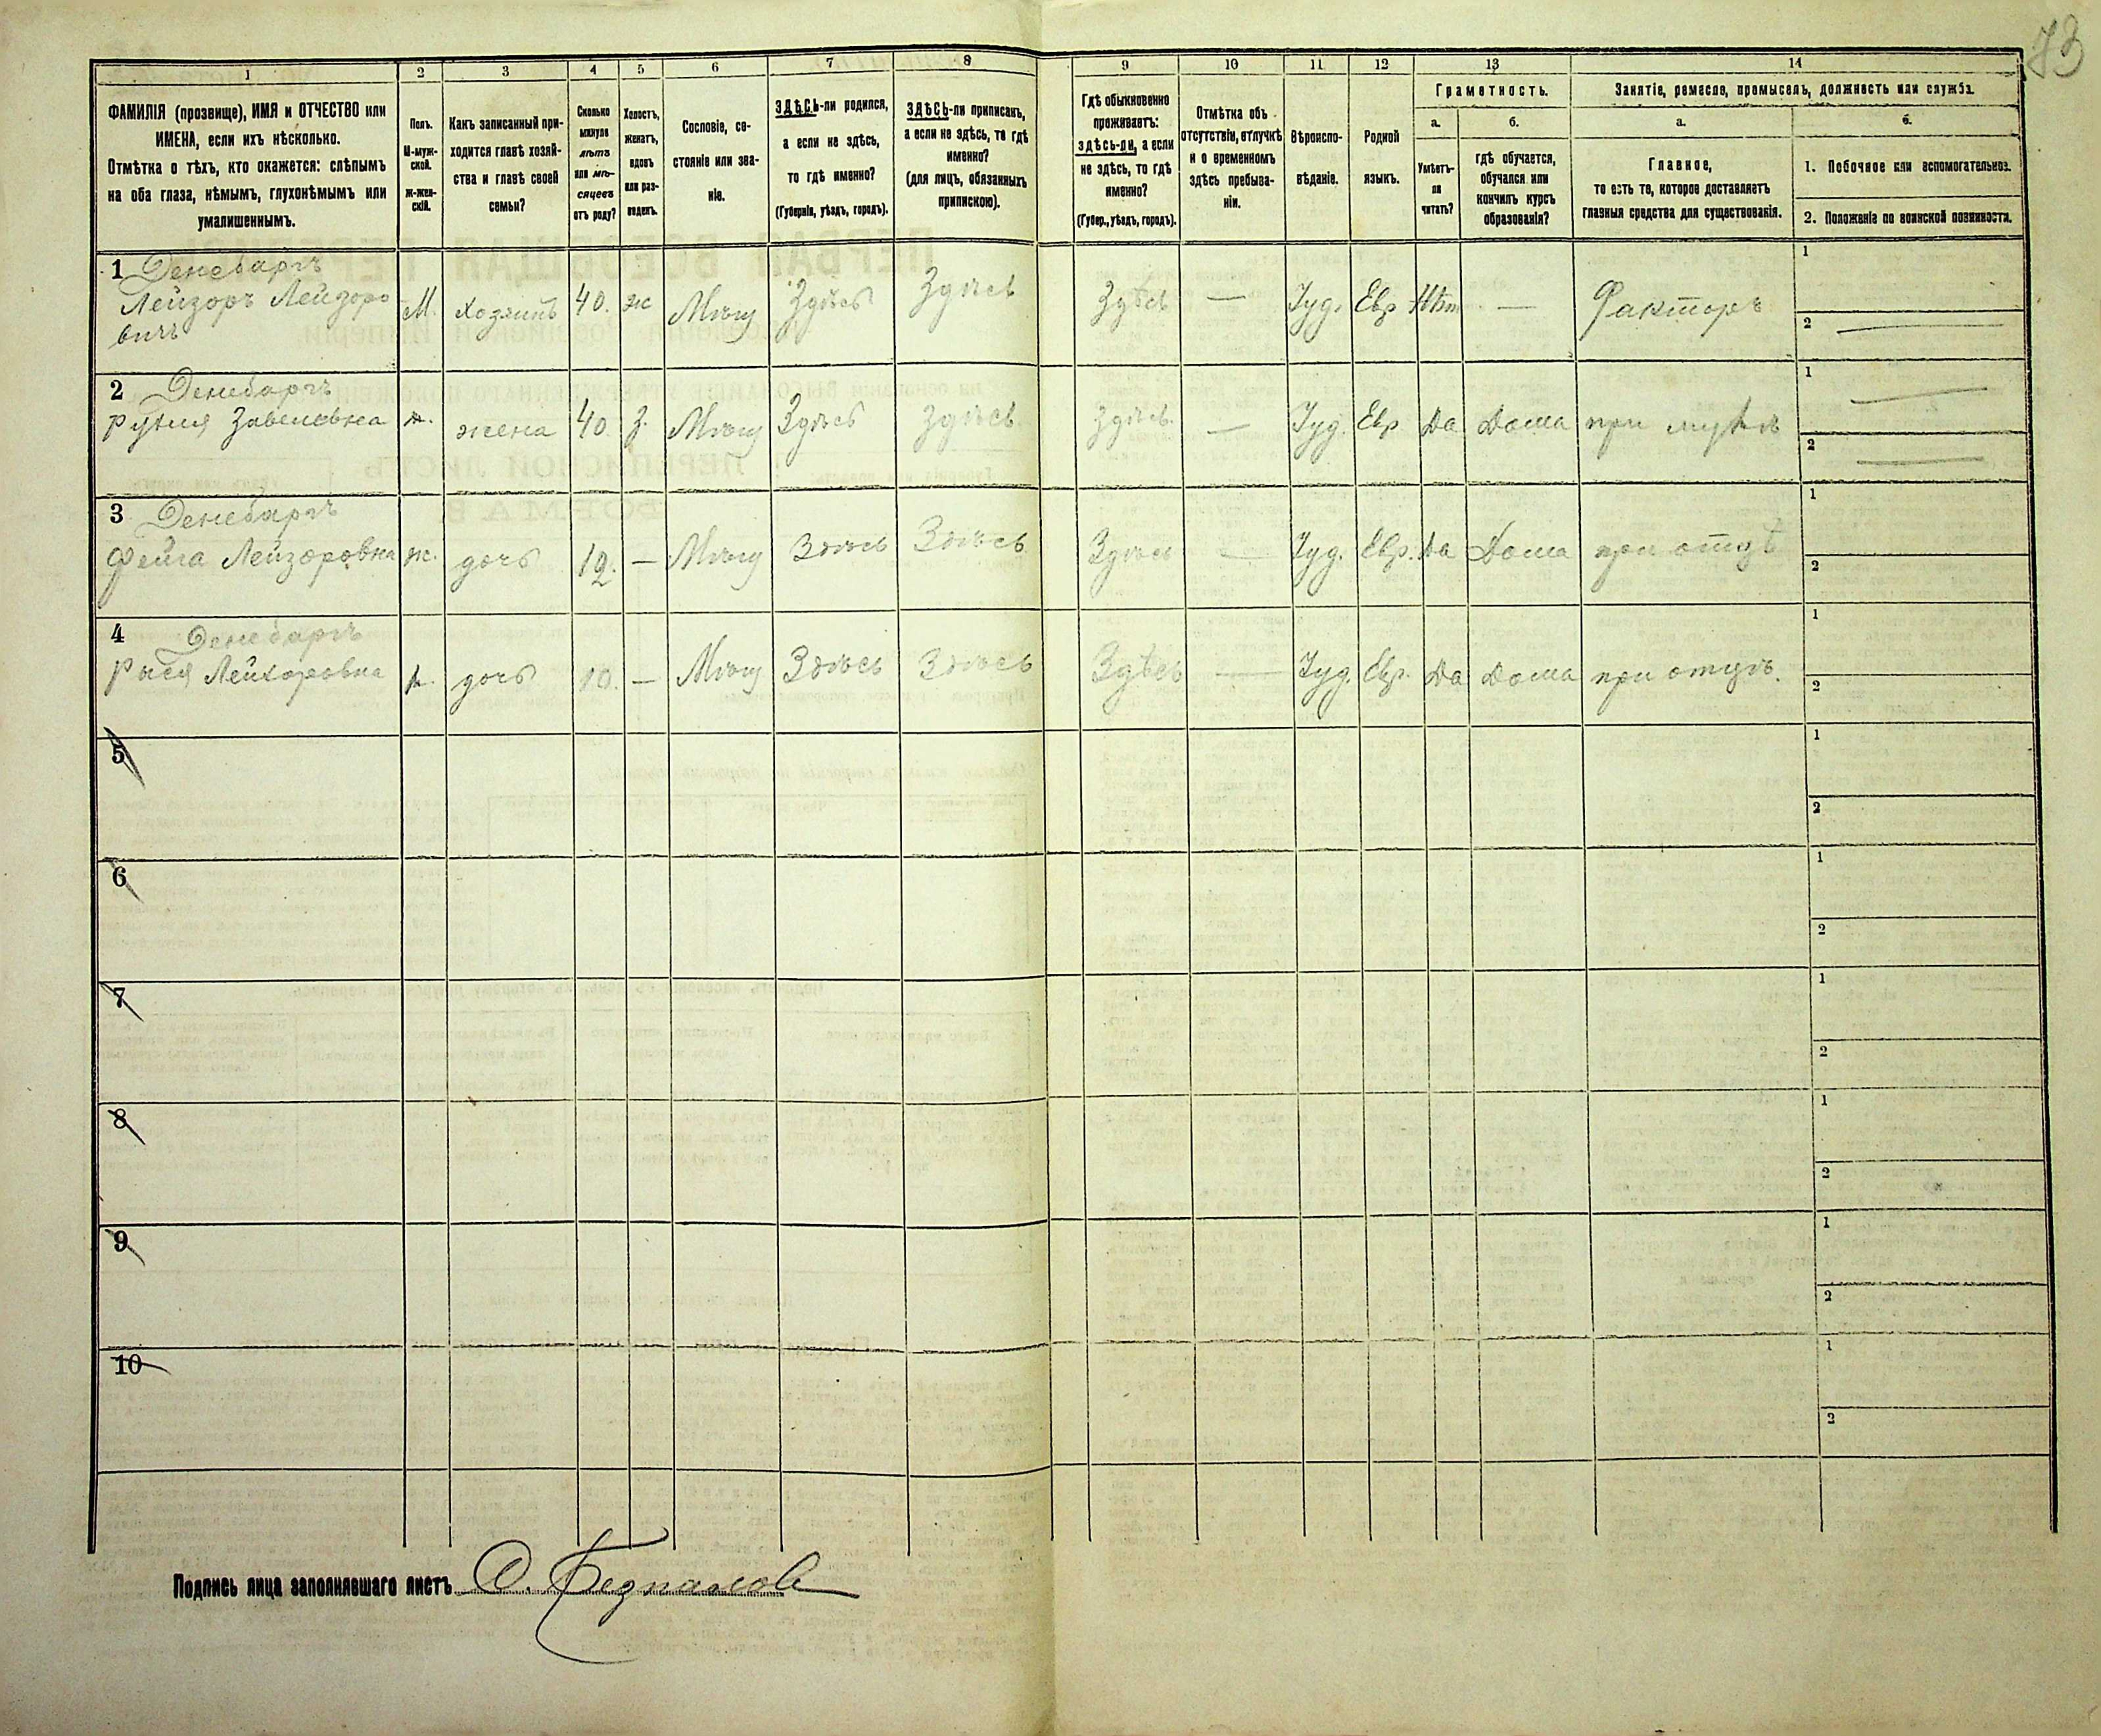 73
1 2 3 4 5 6 7 8 9 10 11 12 13 14
ФАМИЛІЯ (прозвище), ИМЯ и ОТЧЕСТВО или
ИМЕНА, если ихъ нѣсколько.
Отмѣтка о тѣхъ, кто окажется: слѣпымъ
на оба глаза, нѣмымъ, глухонѣмымъ или
умалишеннымъ.
Полъ.
М-муж-
ской.
ж-жен-
скій.
Какъ записанный при-
ходится главѣ хозяй-
ства и главѣ своей
семьи?
Сколько
минуло
лѣтъ
или мѣ-
сяцевъ
отъ роду?
Холостъ,
женатъ,
вдовъ
или раз-
веденъ.
Сословіе, со-
стояніе или зва-
ніе.
ЗДѢСЬ-ли родился,
а если не здѣсь,
то гдѣ именно?
(Губернія, уѣздъ, городъ).
ЗДѢСЬ-ли приписанъ,
а если не здѣсь, то гдѣ
именно?
(для лицъ, обязанныхъ
припискою).
Гдѣ обыкновенно
проживаетъ:
здѣсь-ли, а если
не здѣсь, то гдѣ
именно?
(Губер., уѣздъ, городъ).
Отмѣтка объ
отсутствіи, отлучкѣ
и о временномъ
здѣсь пребыва-
ніи.
Вѣроиспо-
вѣданіе.
Родной
языкъ.
Грамотность.
а.
Умѣетъ-
ли
читать?
б.
гдѣ обучается,
обучался или
кончилъ курсъ
образованія?
Занятіе, ремесло, промыселъ, должность или служба.
а.
Главное,
то есть то, которое доставляетъ
главныя средства для существованія.
б.
1. Побочное или вспомогательное.
2. Положеніе по воинской повинности.
1 Денебаргъ
Лейзоръ Лейзоро
вичъ
М. Хозяинъ 40. ж Мѣщ Здѣсь Здѣсь Здѣсь — Іуд. Евр Нѣт — Факторъ
1
2
2 Денебаргъ
Завелевна ж. жена 40 З. Мѣщ Здѣсь Здѣсь Здѣсь. — Іуд. Евр Да Дома при мужѣ
1
2
3 Денебаргъ
Фейга Лейзоровна ж. дочь 12. — Мѣщ Здѣсь Здѣсь Здѣсь — Іуд. Евр. Да Дома при отцѣ
1
2
4 Денебаргъ
Рыся Лейзоровна ж. дочь 10. — Мѣщ Здѣсь Здѣсь Здѣсь — Іуд. Евр. Да Дома при отцѣ.
1
2
5
1
2
6
1
2
7
1
2
8
1
2
9
1
2
10
1
2
Подпись лица заполнявшаго листъ